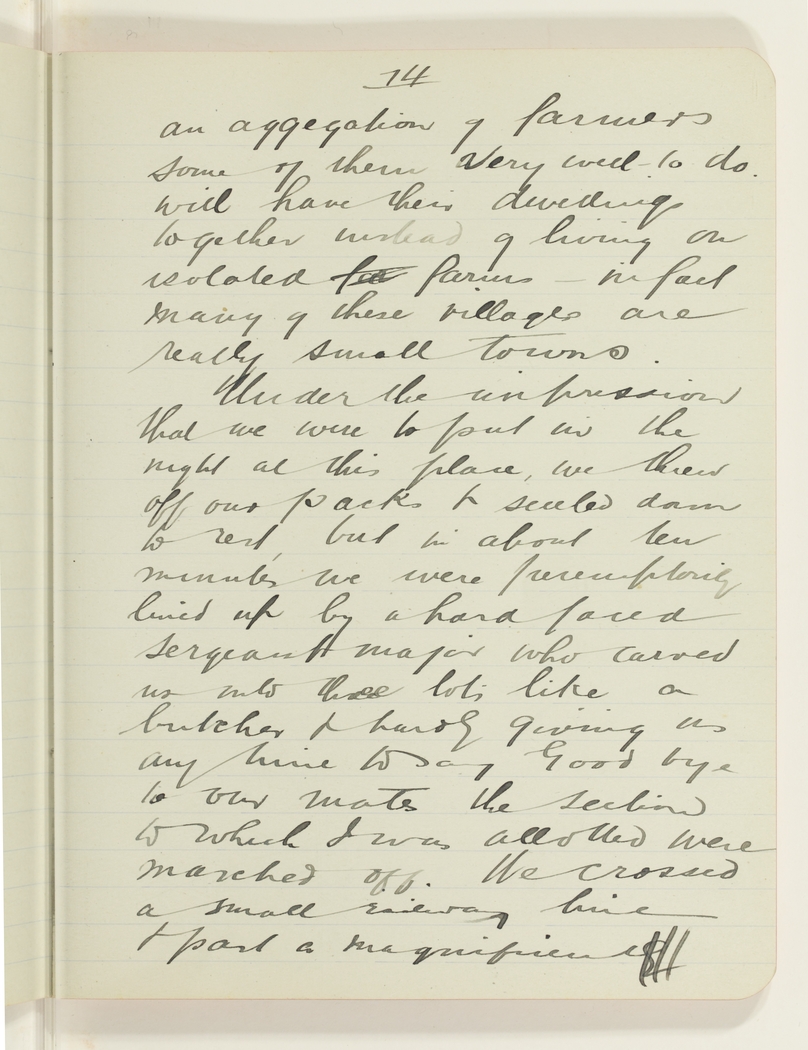 14
an aggegation of farmers
some of them very well-to do.
will have their dwellings
together instead of living on
isolated fa farms - in fact
many of these villages are
really small towns.
Under the impression
that we were to put in the
night at this place, we threw
off our packs & settled down
to rest, but in about ten
minutes we were peremptorily
lined up by a hard faced
sergeant major who carved
us into three lots like a
butcher & hardly giving us
any time to say Good bye
to our mates the section
to which I was allotted were
marched off. We crossed
a small railway line
& past a magnificent